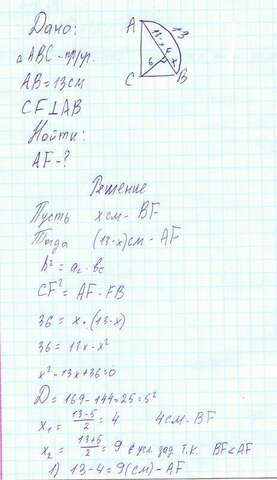 Дано:
△ ABC - пр/уг.
AB = 13 см
CF ⊥ AB
Найти:
AF - ?
A
13-x
13
F
6
x
C
B
Решение
Пусть x см - BF
Тогда (13-x) см - AF
h² = a₂ · bc
CF² = AF · FB
36 = x · (13-x)
36 = 13x - x²
x² - 13x + 36 = 0
D = 169 - 144 = 25 = 5²
x₁ = (13-5)/2 = 4 4 см - BF
x₂ = (13+5)/2 = 9 в усл. зад. т.к. BF < AF
1) 13 - 4 = 9 (см) - AF